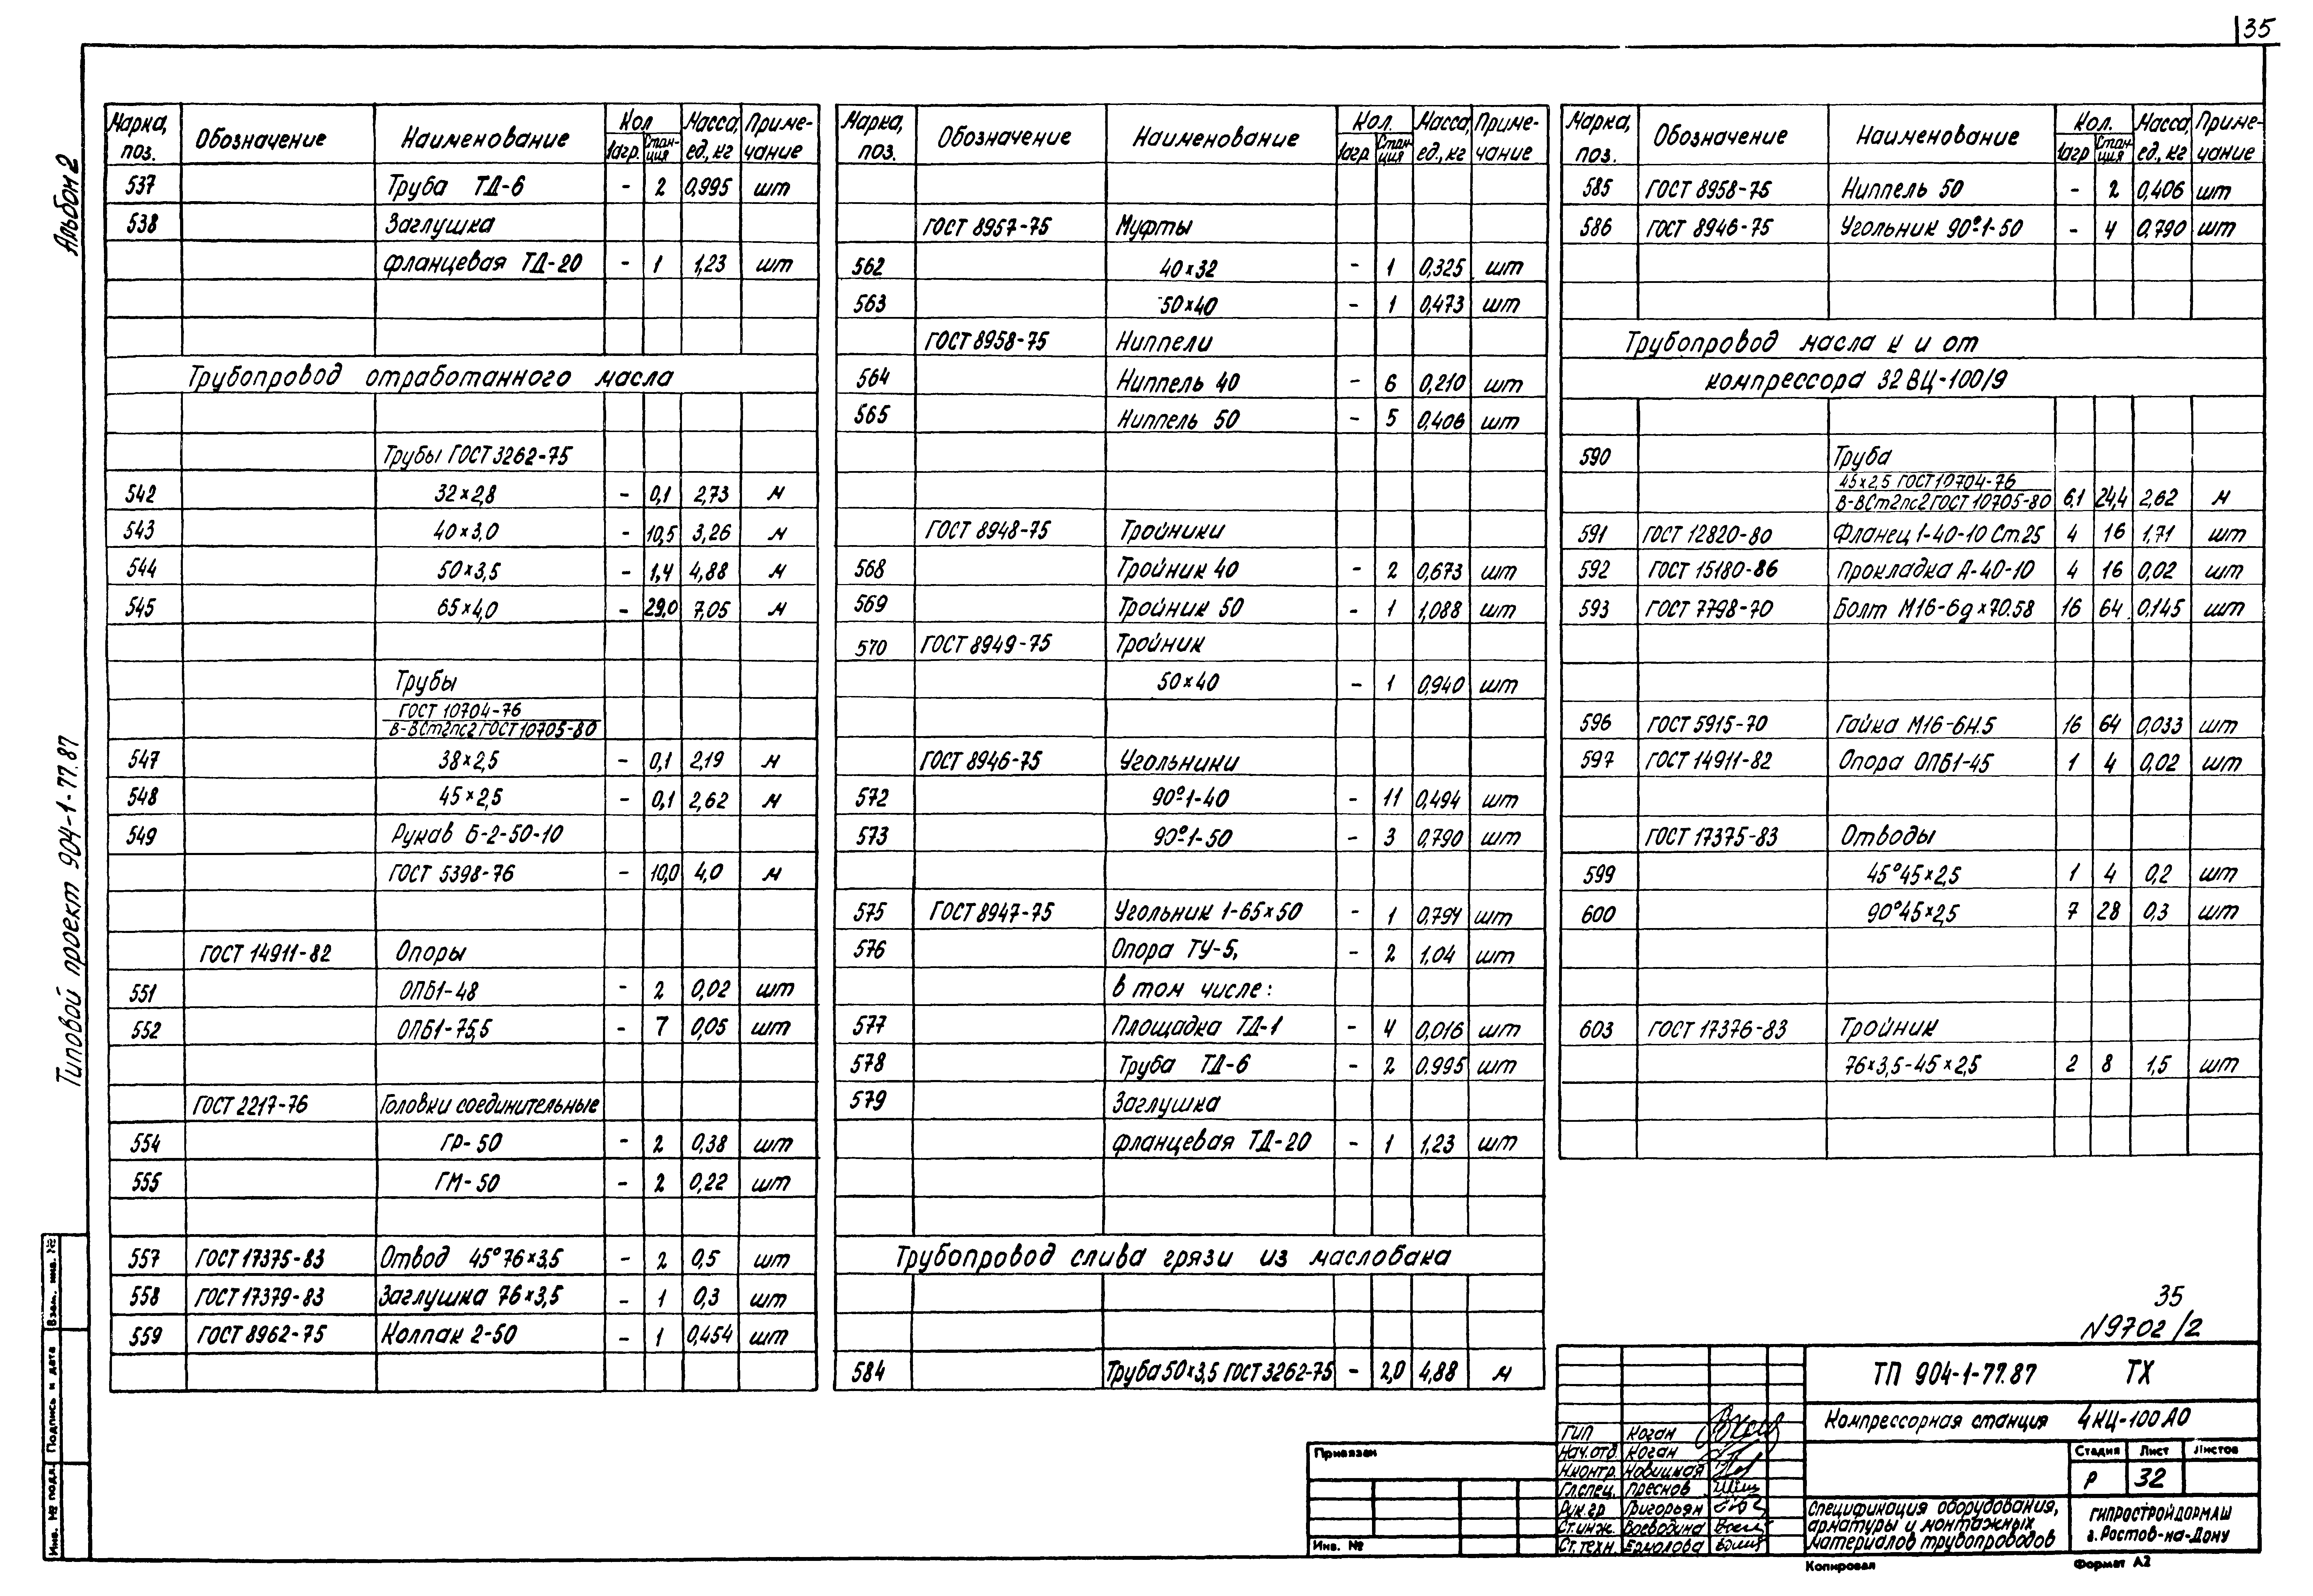 35
Альбом 2
Типовой проект 904-1-77.87
Марка, поз. Обозначение Наименование Кол. 1агр. Стан-ция Масса, ед., кг Приме-чание
537 Труба ТД-6 - 2 0,995 шт
538 Заглушка
фланцевая ТД-20 - 1 1,23 шт
Трубопровод отработанного масла
Трубы ГОСТ 3262-75
542 32×2,8 - 0,1 2,73 м
543 40×3,0 - 10,5 3,26 м
544 50×3,5 - 1,4 4,88 м
545 65×4,0 - 29,0 7,05 м
Трубы
ГОСТ 10704-76
В-ВСт2пс2 ГОСТ 10705-80
547 38×2,5 - 0,1 2,19 м
548 45×2,5 - 0,1 2,62 м
549 Рукав Б-2-50-10
ГОСТ 5398-76 - 10,0 4,0 м
ГОСТ 14911-82 Опоры
551 ОПБ1-48 - 2 0,02 шт
552 ОПБ1-75,5 - 7 0,05 шт
ГОСТ 2217-76 Головки соединительные
554 ГР-50 - 2 0,38 шт
555 ГМ-50 - 2 0,22 шт
557 ГОСТ 17375-83 Отвод 45°76×3,5 - 2 0,5 шт
558 ГОСТ 17379-83 Заглушка 76×3,5 - 1 0,3 шт
559 ГОСТ 8962-75 Колпак 2-50 - 1 0,454 шт
Марка, поз. Обозначение Наименование Кол. 1агр Стан-ция Масса, ед., кг Приме-чание
ГОСТ 8957-75 Муфты
562 40×32 - 1 0,325 шт
563 50×40 - 1 0,473 шт
ГОСТ 8958-75 Ниппели
564 Ниппель 40 - 6 0,210 шт
565 Ниппель 50 - 5 0,406 шт
ГОСТ 8948-75 Тройники
568 Тройник 40 - 2 0,673 шт
569 Тройник 50 - 1 1,088 шт
570 ГОСТ 8949-75 Тройник
50×40 - 1 0,940 шт
ГОСТ 8946-75 Угольники
572 90°-1-40 - 11 0,494 шт
573 90°-1-50 - 3 0,790 шт
575 ГОСТ 8947-75 Угольник 1-65×50 - 1 0,794 шт
576 Опора ТУ-5, - 2 1,04 шт
в том числе:
577 Площадка ТД-1 - 4 0,016 шт
578 Труба ТД-6 - 2 0.995 шт
579 Заглушка
фланцевая ТД-20 - 1 1,23 шт
Трубопровод слива грязи из маслобака
584 Труба 50×3,5 ГОСТ 3262-75 - 2,0 4,88 м
Марка, поз. Обозначение Наименование Кол. 1агр Стан-ция Масса, ед., кг Приме-чание
585 ГОСТ 8958-75 Ниппель 50 - 2 0,406 шт
586 ГОСТ 8946-75 Угольник 90°-1-50 - 4 0.790 шт
Трубопровод масла к и от
компрессора 32 ВЦ-100/9
590 Труба
45×2,5 ГОСТ 10704-76
В-ВСт2пс2 ГОСТ 10705-80 6,1 24,4 2,62 м
591 ГОСТ 12820-80 Фланец 1-40-10 Ст.25 4 16 1,71 шт
592 ГОСТ 15180-86 Прокладка А-40-10 4 16 0,02 шт
593 ГОСТ 7798-70 Болт М16-6g×70.58 16 64 0,145 шт
596 ГОСТ 5915-70 Гайка М16-6Н.5 16 64 0,033 шт
597 ГОСТ 14911-82 Опора ОПБ1-45 1 4 0,02 шт
ГОСТ 17375-83 Отводы
599 45°45×2,5 1 4 0,2 шт
600 90°45×2,5 7 28 0,3 шт
603 ГОСТ 17376-83 Тройник
76×3,5-45×2,5 2 8 1,5 шт
35
N9702/2
ТП 904-1-77.87 ТХ
Компрессорная станция 4КЦ-100АО
Стадия Лист Листов
Р 32
Спецификация оборудования,
арматуры и монтажных
материалов трубопроводов
ГИПРОСТРОЙДОРМАШ
г. Ростов-на-Дону
ГИП Коган
Нач.отд. Коган
Н.контр. Новицкая
Гл.спец. Преснов
Рук.гр Григорьян
Ст.инж. Воеводина
Ст.техн. Ермолова
Привязан
Инв. №
Взам. инв. №
Подпись и дата
Инв. № подл.
Копировал Формат А2